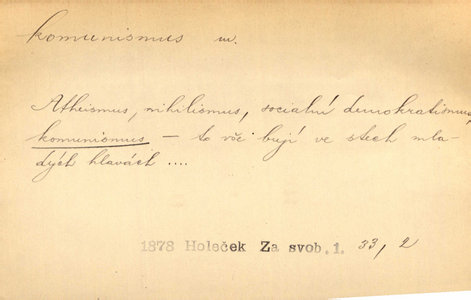 komunismus m.
Atheismus, nihilismus, socialní demokratismus,
komunismus — to vše bují ve stech mla-
dých hlavách ....
1878 Holeček Za svob. 1. 33, 2